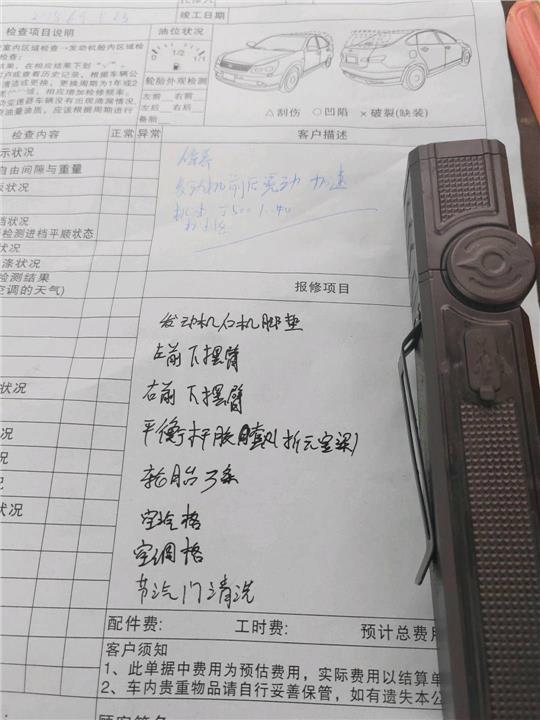 竣工日期
检查项目说明
油位状况
室内区域检查→发动机舱内区域检
1/2
轮胎外观检测
左前 右前
左后 右后
备胎
△刮伤 ○凹陷 ×破裂(缺装)
检查内容 正常 异常 客户描述
示状况
自由间隙与重量
板状况
档状况
检测进档平顺状态
涤状况
检测结果
空调的天气)
保养
发动机前后晃动 加速
报修项目
发动机右机脚垫
左前下摆臂
右前下摆臂
平衡杆胶套(拆元宝梁)
轮胎3条
空汽格
空调格
节汽门清洗
状况
况
况
状况
配件费: 工时费: 预计总费用
客户须知
1、此单据中费用为预估费用，实际费用以结算单
2、车内贵重物品请自行妥善保管，如有遗失本公
顾客签名